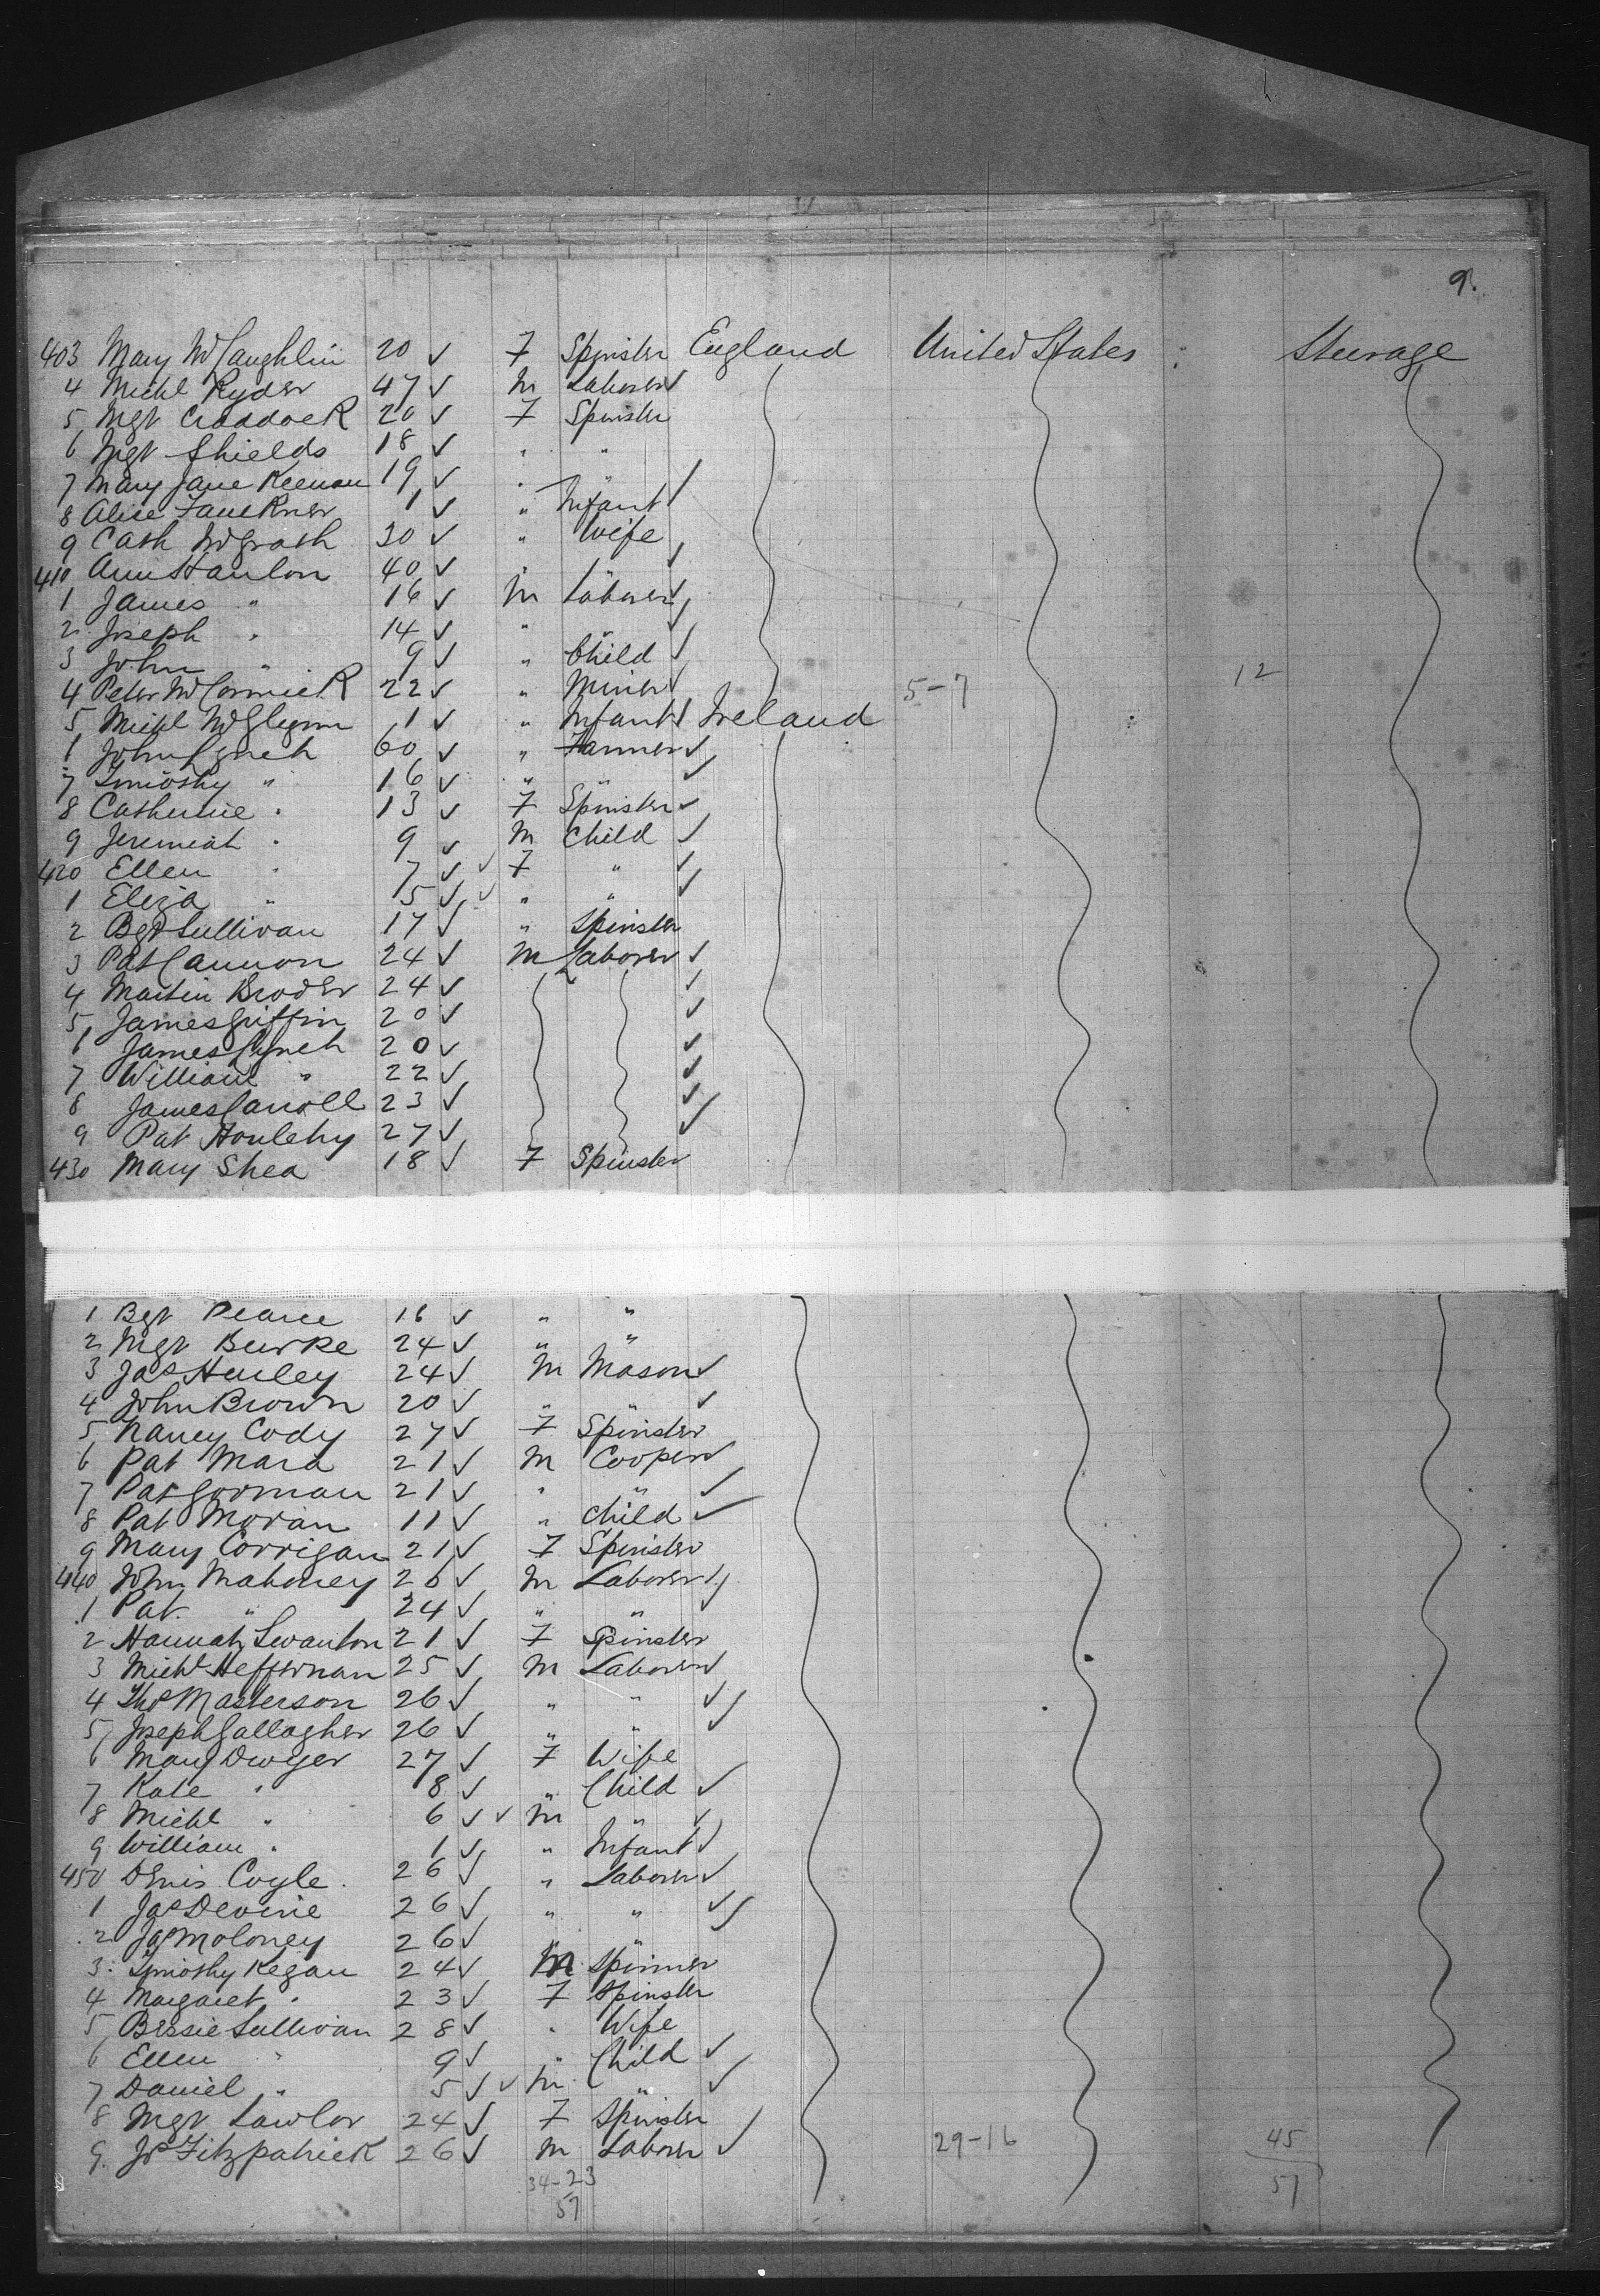 9.
403 Mary McLaughlin 20 ✓ F Spinster England United States Steerage
4 Michl Ryder 47 ✓ M Laborer ✓
5 Mgt Craddock 20 ✓ F Spinster
6 Mgt Shields 18 ✓ " "
7 Mary Jane Keenan 19 ✓ " "
8 Alice Faulkner 1 ✓ " Infant ✓
9 Cath McGrath 30 ✓ " Wife
410 Ann Hanlon 40 ✓ " "
1 James " 16 ✓ M Laborer ✓
2 Joseph " 14 ✓ " " ✓
3 John " 9 ✓ " Child ✓
4 Peter McCormick 22 ✓ " Miner ✓ 5-7 12
5 Michl McGlynn 1 ✓ " Infant ✓ Ireland
6 John Lynch 60 ✓ " Farmer ✓
7 Timothy " 16 ✓ " " ✓
8 Catherine " 13 ✓ F Spinster ✓
9 Jeremiah " 9 ✓ M Child ✓
420 Ellen " 7 ✓ ✓ F " ✓
1 Eliza " 5 ✓ ✓ " " ✓
2 Bgt Sullivan 17 ✓ " Spinster
3 Pat Cannon 24 ✓ M Laborer ✓
4 Martin Broder 24 ✓ ✓
5 James Griffin 20 ✓ ✓
6 James Lynch 20 ✓ ✓
7 William " 22 ✓ ✓
8 James Carroll 23 ✓ ✓
9 Pat Houlehy 27 ✓ ✓
430 Mary Shea 18 ✓ F Spinster
1 Bgt Pearce 16 ✓ " "
2 Mgt Burke 24 ✓ " "
3 Jas Hurley 24 ✓ M Mason ✓
4 John Brown 20 ✓ " " ✓
5 Nancy Cody 27 ✓ F Spinster
6 Pat Mara 21 ✓ M Cooper ✓
7 Pat Gorman 21 ✓ " " ✓
8 Pat Moran 11 ✓ " Child ✓
9 Mary Corrigan 21 ✓ F Spinster
440 John Mahoney 26 ✓ M Laborer ✓
1 Pat " 24 ✓ " " ✓
2 Hannah Swanton 21 ✓ F Spinster
3 Michl Heffernan 25 ✓ M Laborer ✓
4 Thos Masterson 26 ✓ " " ✓
5 Joseph Gallagher 26 ✓ " " ✓
6 Mary Dwyer 27 ✓ F Wife
7 Kate " 8 ✓ " Child ✓
8 Michl " 6 ✓ ✓ M " ✓
9 William " 1 ✓ " Infant ✓
450 Denis Coyle 26 ✓ " Laborer ✓
1 Jas Devine 26 ✓ " " ✓
2 Jas Moloney 26 ✓ " " ✓
3 Timothy Kegan 24 ✓ M Spinner
4 Margaret " 23 ✓ F Spinster
5 Bessie Sullivan 28 ✓ " Wife
6 Ellen " 9 ✓ " Child ✓
7 Daniel " 5 ✓ ✓ M " ✓
8 Mgt Lawlor 24 ✓ F Spinster
9 Js Fitzpatrick 26 ✓ M Laborer ✓ 29-16 45
34-23 57
57